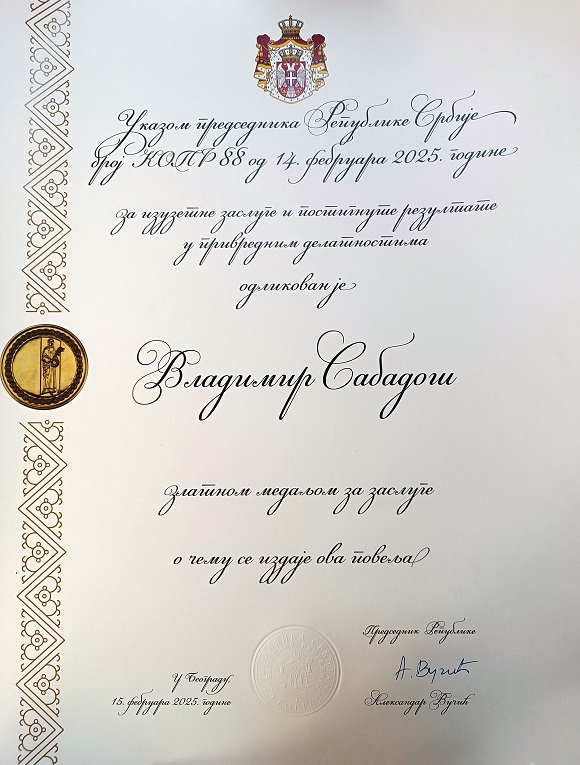 Указом председника Републике Србије
број КОПР 88 од 14. фебруара 2025. године
за изузетне заслуге и постигнуте резултате
у привредним делатностима
одликован је
Владимир Сабадош
златном медаљом за заслуге
о чему се издаје ова повеља
Председник Републике
А. Вучић
У Београду,
15. фебруара 2025. године
Александар Вучић